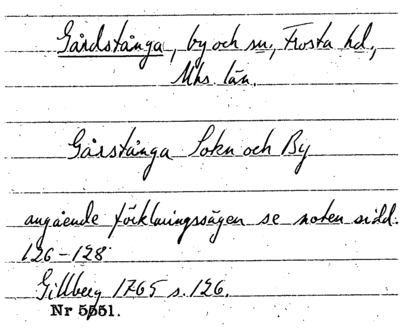 Gårdstånga, by och sn, Frosta hd,
Mhs län.
Gårstånga Sokn och By
angående förklaringssägen se noten sidd.
126-128
Gillberg 1765 s. 126.
Nr 5551.